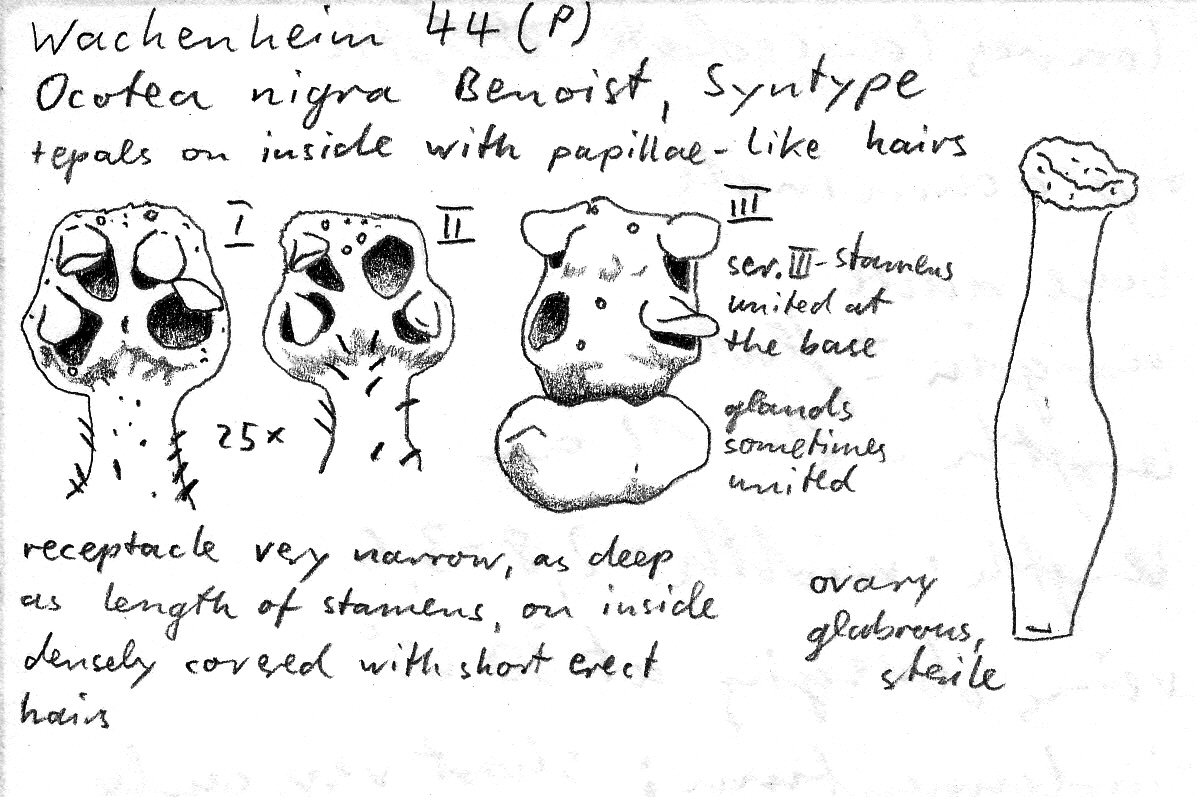 Wachenheim 44 (P)
Ocotea nigra Benoist, Syntype
tepals on inside with papillae-like hairs
I
II
III
ser. III-stamens
united at
the base
25x
glands
sometimes
united
receptacle very narrow, as deep
as length of stamens, on inside
densely covered with short erect
hairs
ovary
glabrous,
sterile